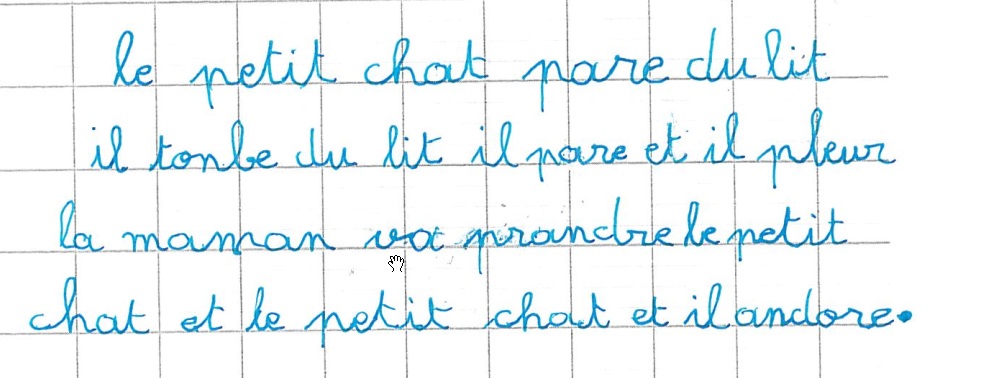 le petit chat pare du lit
il tonbe du lit il pare et il pleur
la maman va praindre le petit
chat et le petit chat et il andore.